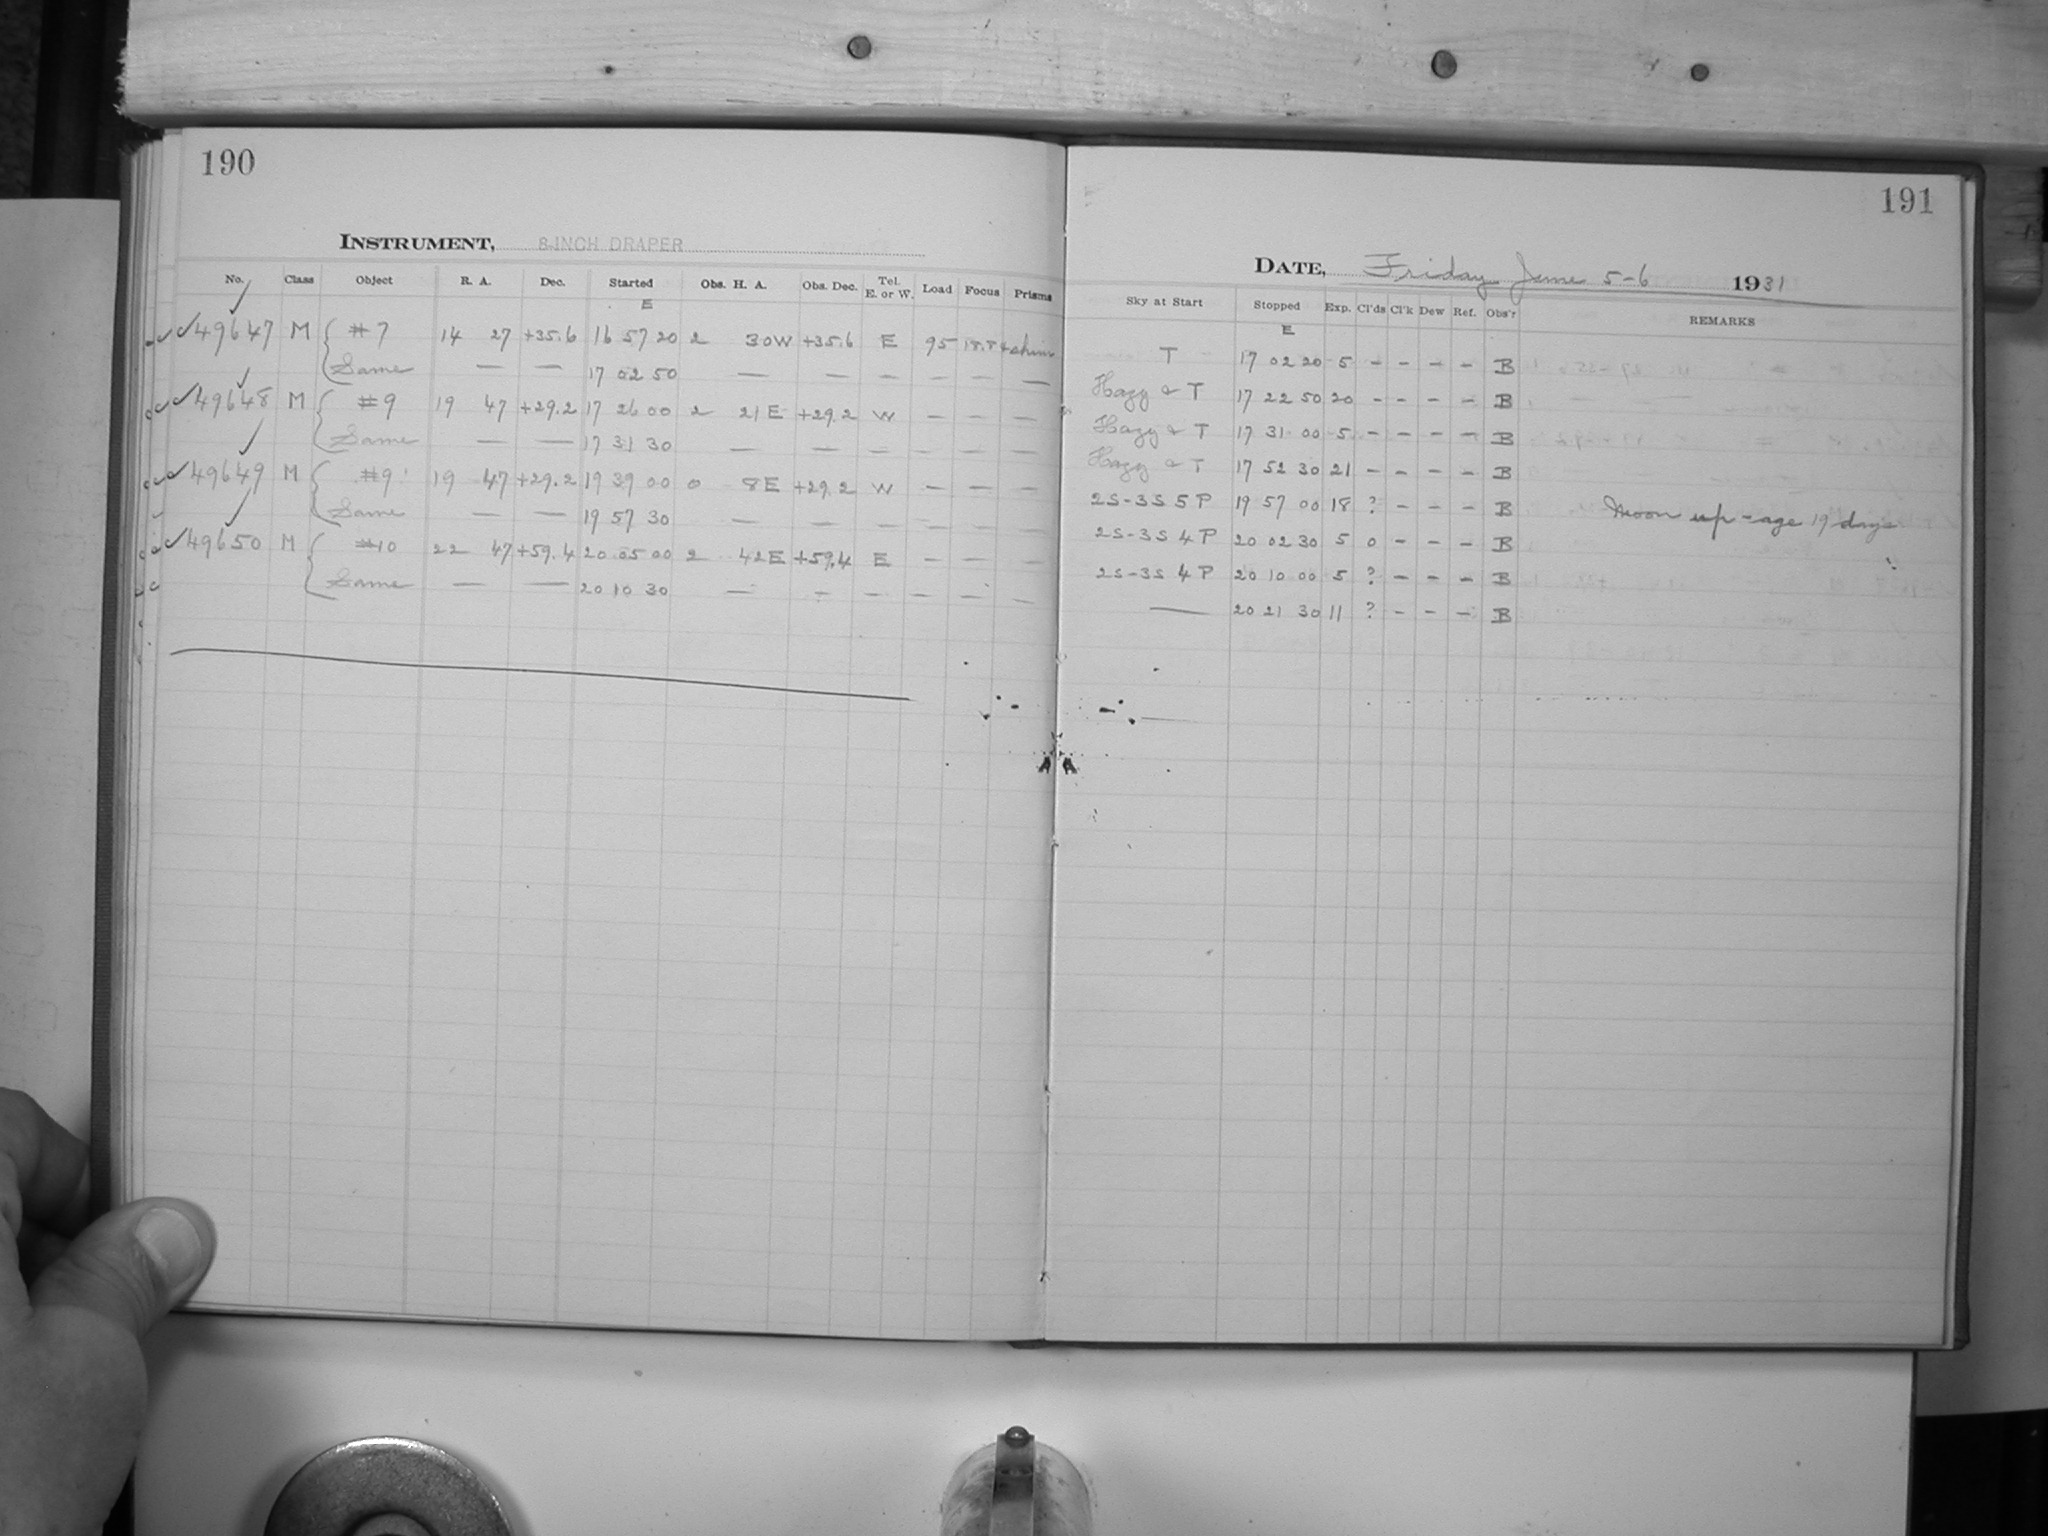 190
INSTRUMENT, 8-INCH DRAPER
No. Class Object R. A. Dec. Started Obs. H. A. Obs. Dec. Tel. E. or W. Load Focus Prisms
E
49647 M #7 14 27 +35.6 16 57 20 2 30W +35.6 E 95
Same — — 17 02 50 — — — — — —
49648 M #9 19 47 +29.2 17 26 00 2 21E +29.2 W — — —
Same — — 17 31 30 — — — — — —
49649 M #9 19 47 +29.2 19 39 00 0 8E +29.2 W — — —
Same — — 19 57 30 — — — — — —
49650 M #10 22 47 +59.4 20 05 00 2 42E +59.4 E — — —
Same — — 20 10 30 — — — — — —
191
DATE, Friday June 5-6 1931
Sky at Start Stopped Exp. Cl'ds Cl'k Dew Ref. Obs'r REMARKS
E
T 17 02 20 5 - - - - B
Hazy & T 17 22 50 20 - - - - B
Hazy & T 17 31 00 5 - - - - B
Hazy & T 17 52 30 21 - - - - B
2S-3S 5P 19 57 00 18 ? - - - B Moon up - age 19 days
2S-3S 4P 20 02 30 5 0 - - - B
2S-3S 4P 20 10 00 5 ? - - - B
— 20 21 30 11 ? - - - B